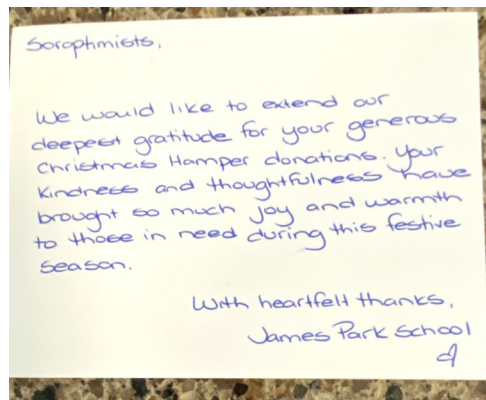 Sorophmists,
We would like to extend our
deepest gratitude for your generous
Christmas Hamper donations. Your
kindness and thoughtfulness have
brought so much joy and warmth
to those in need during this festive
season.
With heartfelt thanks,
James Park School